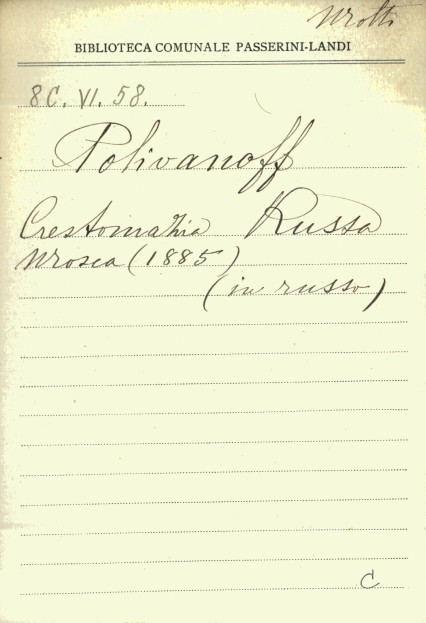 BIBLIOTECA COMUNALE PASSERINI-LANDI
8C. VI. 58.
Polivanoff
Crestomazia Russa
Mosca (1885)
(in russo)
C